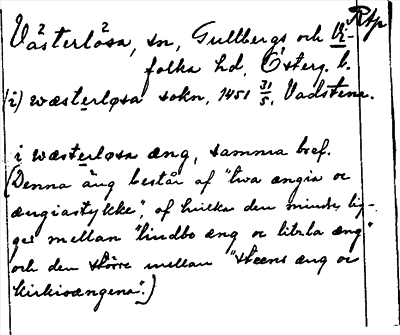 Rtp
Västerlösa, sn, Gullbergs och Vi-
folka hd, Österg. l.
(i) wæsterløsa sokn, 1451 31/5, Vadstena.
i wæsterløsa æng, samma bref.
(Denna äng består af "twa ængia oc
ængiastykke", af hvilka den mindre lig-
ger mellan "lindbo æng oc litzla æng"
och den större mellan "steens æng oc
kirkioængena".)